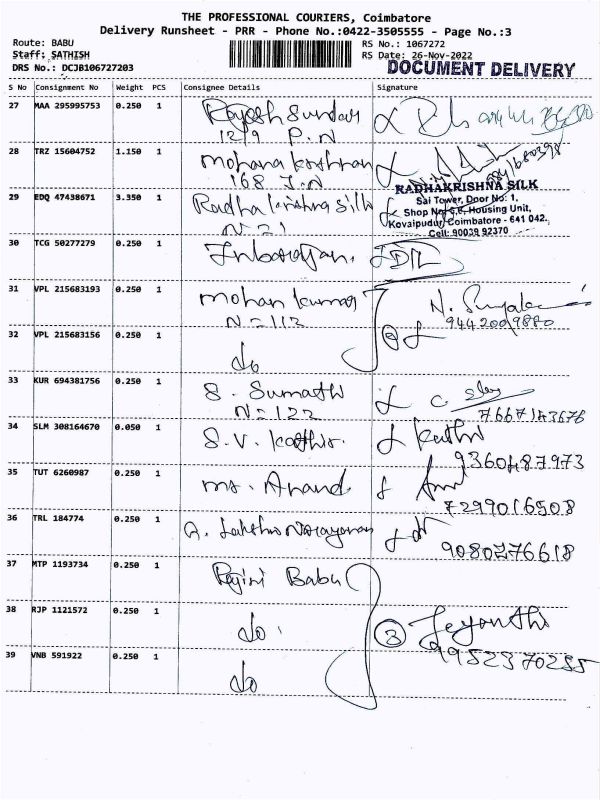 THE PROFESSIONAL COURIERS, Coimbatore
Delivery Runsheet - PRR - Phone No.:0422-3505555 - Page No.:3
Route: BABU
RS No.: 1067272
Staff: SATHISH
RS Date: 26-Nov-2022
DRS No.: DCJB106727203
DOCUMENT DELIVERY
S No Consignment No Weight PCS Consignee Details Signature
27 MAA 295995753 0.250 1 Rajesh Sundar
12/9 P.N
28 TRZ 15604752 1.150 1 Mohana Krishnan
168 J.N
29 EDQ 47438671 3.350 1 Radha Krishna Silk
N-21
RADHAKRISHNA SILK
Sai Tower, Door No: 1,
Shop No: 5,6, Housing Unit,
Kovaipudur, Coimbatore - 641 042.
Cell: 90039 92370
30 TCG 50277279 0.250 1
31 VPL 215683193 0.250 1 Mohan Kumar
N-112
9442009880
32 VPL 215683156 0.250 1 do
33 KUR 694381756 0.250 1 S. Sumathi
N-122
7667143676
34 SLM 308164670 0.050 1 S.V. Kathir. Kathi
9360487973
35 TUT 6260987 0.250 1 Mr. Anand
7299016508
36 TRL 184774 0.250 1 A. Lakshmi Narayanan
9080276618
37 MTP 1193734 0.250 1 Rajini Babu
38 RJP 1121572 0.250 1 do. 3 Jeyanthi
9952370255
39 VNB 591922 0.250 1 do